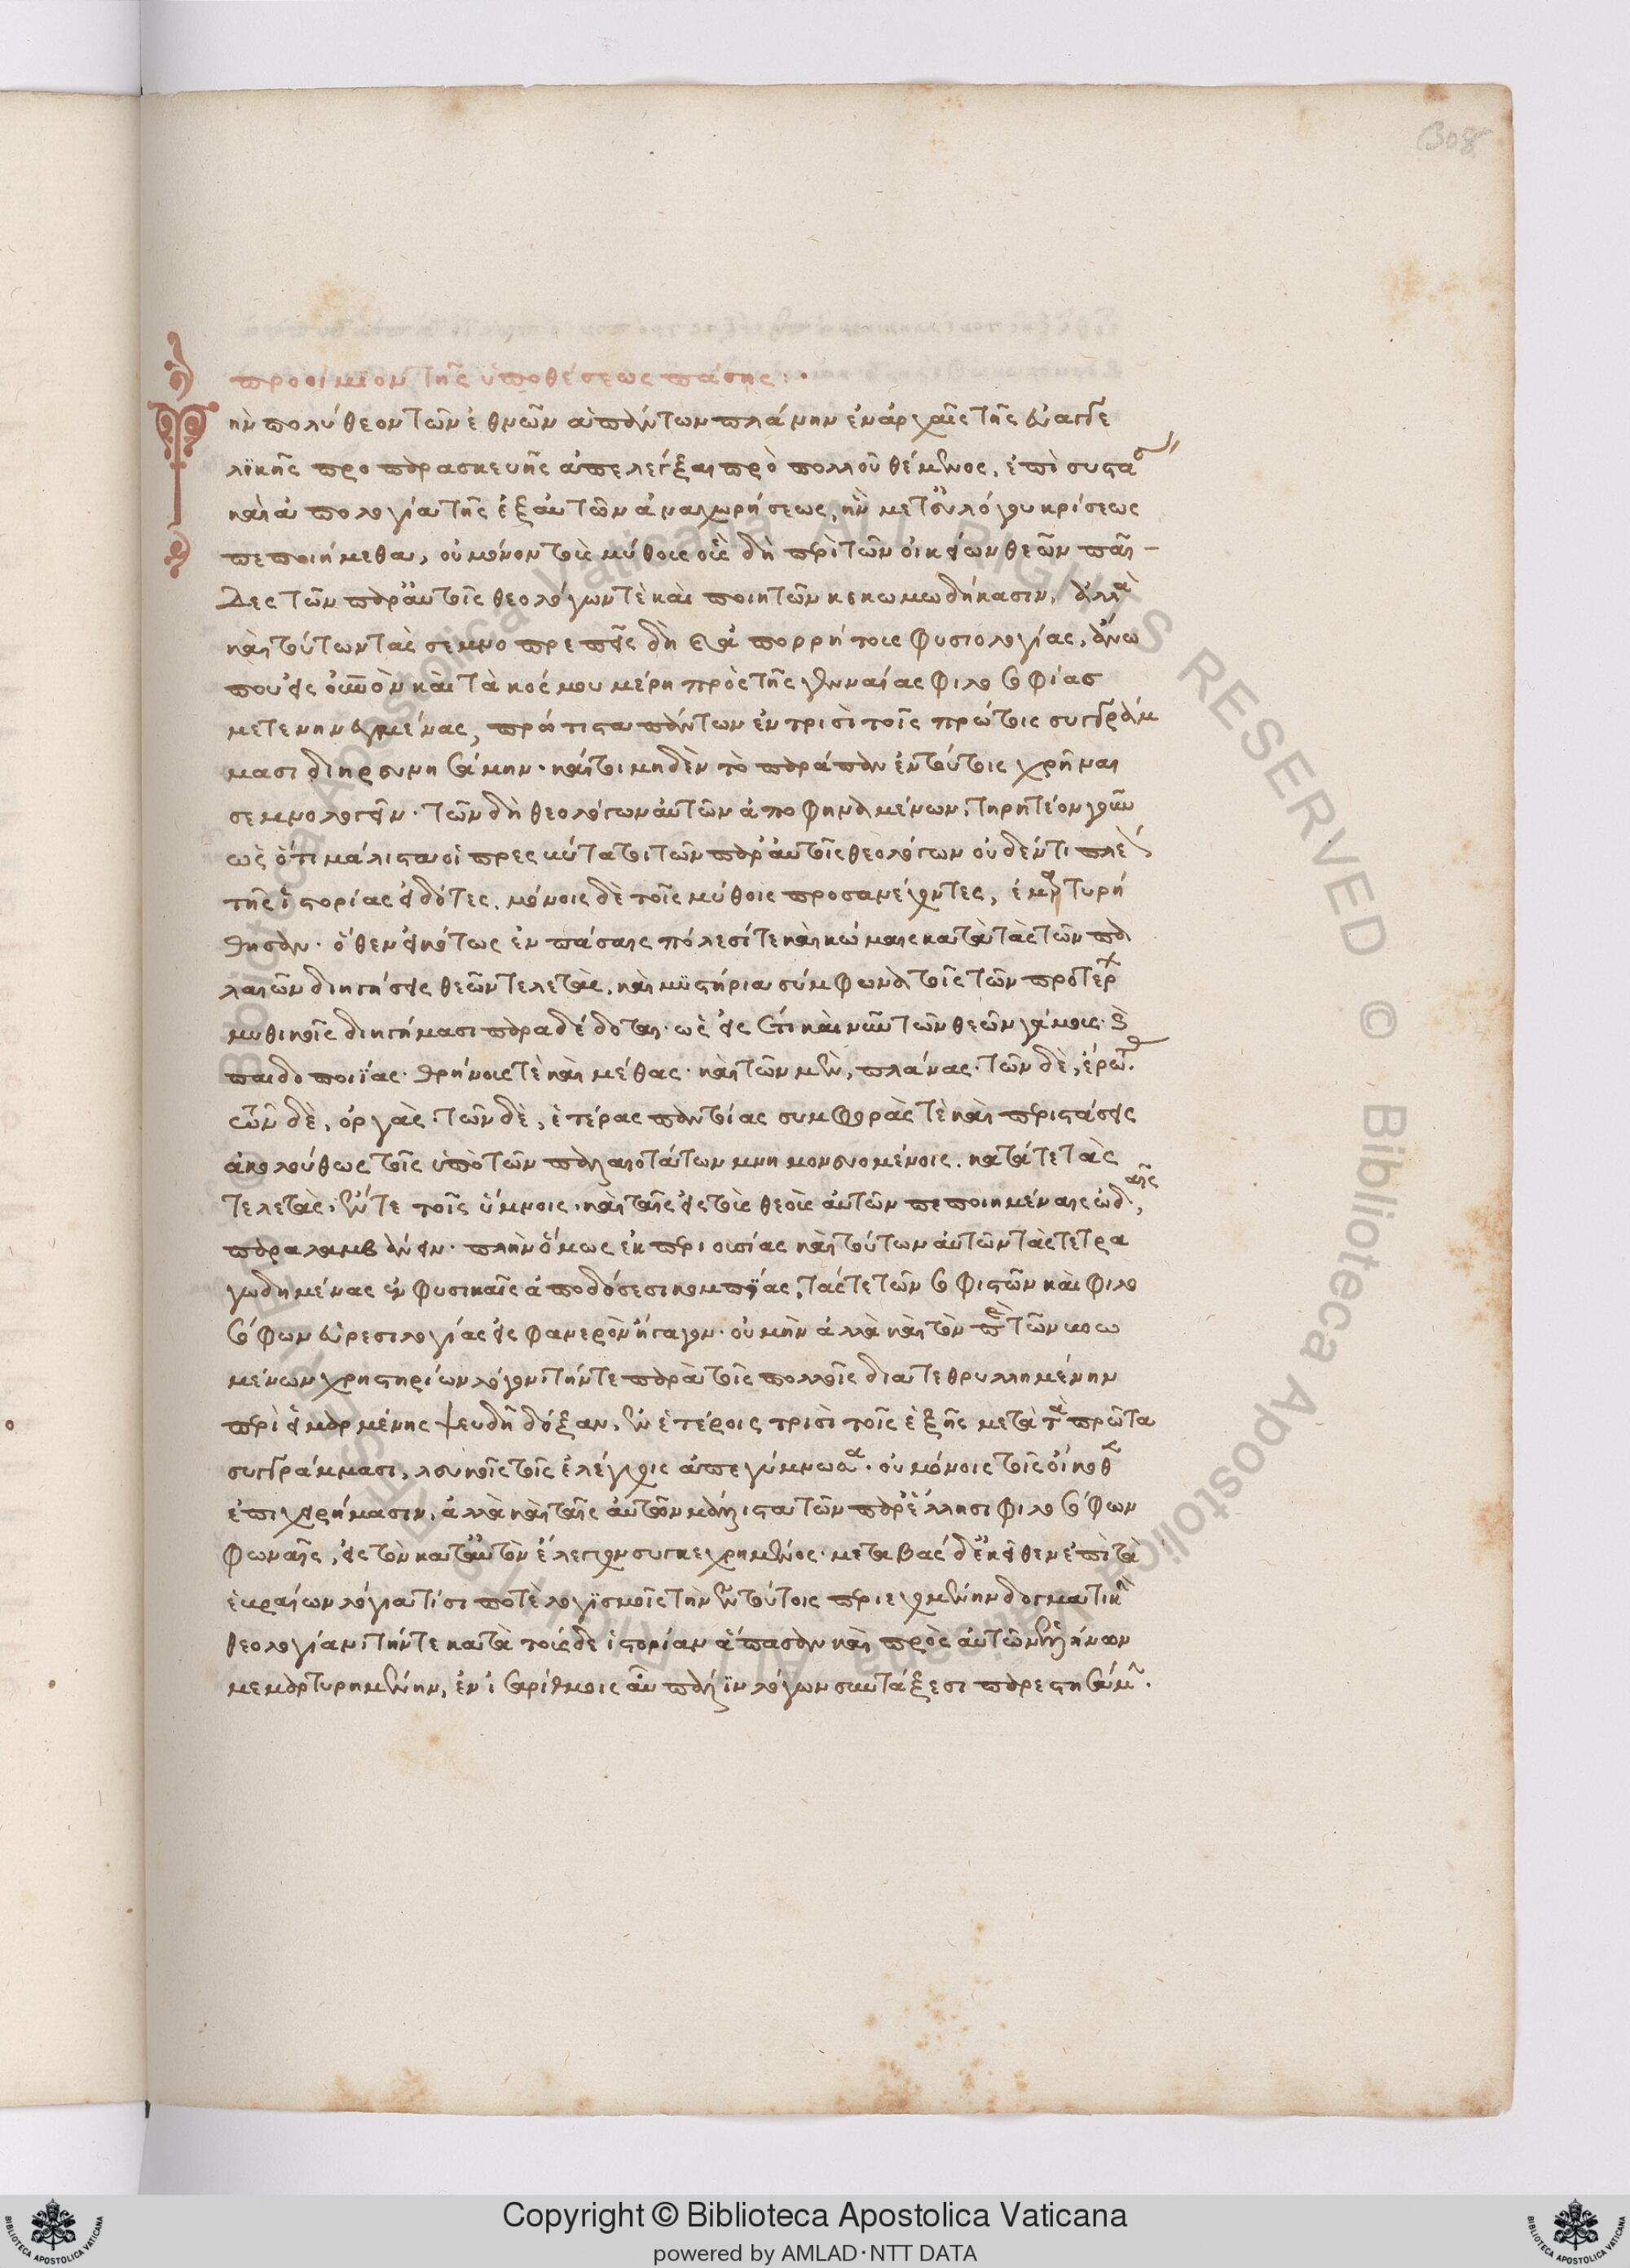 308
προοίμιον τῆς ὑποθέσεως πάσης:·
Τὴν πολύθεον τῶν ἐθνῶν ἁπάντων πλάνην ἐν ἀρχαῖς τῆς εὐαγγε
λικῆς προπαρασκευῆς ἀπελέγξαι πρὸ πολλοῦ θέμενος, ἐπὶ συστά
καὶ ἀπολογία τῆς ἐξ αὐτῶν ἀναχωρήσεως, ἣν μετ οὐ λόγου κρίσεως
πεποιήμεθα, οὐ μόνον τοῖς μύθοις οἷς δὴ περὶ τῶν οἰκείων θεῶν παῖ-
δες τῶν παρ' αὐτοῖς θεολόγων τὲ καὶ ποιητῶν κεκωμωδήκασιν, ἀλλὰ
καὶ τούτων τὰς σεμνοπρεπεῖς δὴ ἀπορρήτοις φυσιολογίας, ἄνω
που εἰς οὐρανὸν καὶ τὰ κόσμου μέρη πρὸς τῆς γενναίας φιλοσοφίας
μετενηνεγμένας, πρώτιστα πάντων ἐν τρισὶ τοῖς πρώτοις συγγράμ
μασι διηρευνησάμην. καίτοι μηδὲν τὸ παράπαν ἐν τούτοις χρῆναι
σεμνολογεῖν. τῶν δὴ θεολόγων αὐτῶν ἀποφηναμένων. τηρητέον γοῦν
ὡς ὅτι μάλιστα οἱ πρεσβύτατοι τῶν παρ' αὐτοῖς θεολόγων οὐδέν τι πλέ
τῆς ἱστορίας εἰδότες. μόνοις δὲ τοῖς μύθοις προσανέχοντες, ἐμαρτυρή
θησαν. ὅθεν εἰκότως ἐν πάσαις πόλεσί τε καὶ κώμαις κατὰ τὰς τῶν πα
λαιῶν διηγήσεις θεῶν τελετὰς, καὶ μυστήρια σύμφωνα τοῖς τῶν προτέρ
μυθικοῖς διηγήμασι παραδέδοται. ὡς εἰς ἔτι καὶ νῦν τῶν θεῶν γάμοις. καὶ
παιδοποιίας. θρήνοις τὲ καὶ μέθας. καὶ τῶν μὲν, πλάνας. τῶν δὲ, ἔρωτ
τῶν δὲ, ὀργὰς. τῶν δὲ, ἑτέρας παντοίας συμφορὰς τὲ καὶ περιστάσεις
ἀκολούθως τοῖς ὑπὸ τῶν παλαιοτάτων μνημονευομένοις. κατά τε τὰς
τελετὰς, ἔν τε τοῖς ὕμνοις. καὶ ταῖς εἰς τοὺς θεοὺς αὐτῶν πεποιημέναις ὠδαῖς,
παραλαμβάνειν. πλὴν ὅμως ἐκ περιουσίας καὶ τούτων αὐτῶν τὰς τετρα
γωδημένας ἐν φυσικαῖς ἀποδόσεσι κομπείας, τάς τε τῶν σοφιστῶν καὶ φιλο
σόφων εὑρεσιλογίας εἰς φανερὸν ἤγαγον. οὐ μὴν ἀλλὰ καὶ τὸν περὶ τῶν βοω
μένων χρηστηρίων λόγον. τήν τε παρὰ τοῖς πολλοῖς διατεθρυλλημένην
περὶ εἱμαρμένης ψευδῆ δόξαν, ἐν ἑτέροις τρισὶ τοῖς ἑξῆς μετὰ τὰ πρῶτα
συγγράμμασι, λευκοῖς τοῖς ἐλέγχοις ἀπεγύμνωσα. οὐ μόνοις τοῖς οἴκοθ
ἐπιχειρήμασιν, ἀλλὰ καὶ ταῖς αὐτῶν μάλιστα τῶν παρ' ἕλλησι φιλοσόφων
φωναῖς, εἰς τὸν κατ' αὐτῶν ἔλεγχον συγκεχρημένος. μεταβὰς δ' ἐκεῖθεν ἐπὶ τὰ
ἑβραίων λόγια τίσι ποτὲ λογισμοῖς τὴν ἐν τούτοις περιεχομένην δογματικὴ
θεολογίαν. τήν τε κατὰ τούσδε ἱστορίαν ἅπασαν καὶ πρὸς αὐτῶν ἑλλήνων
μεμαρτυρημένην, ἐν ἰσαρίθμοις αὖ πάλιν λόγων συντάξεσι παρεστησάμ.